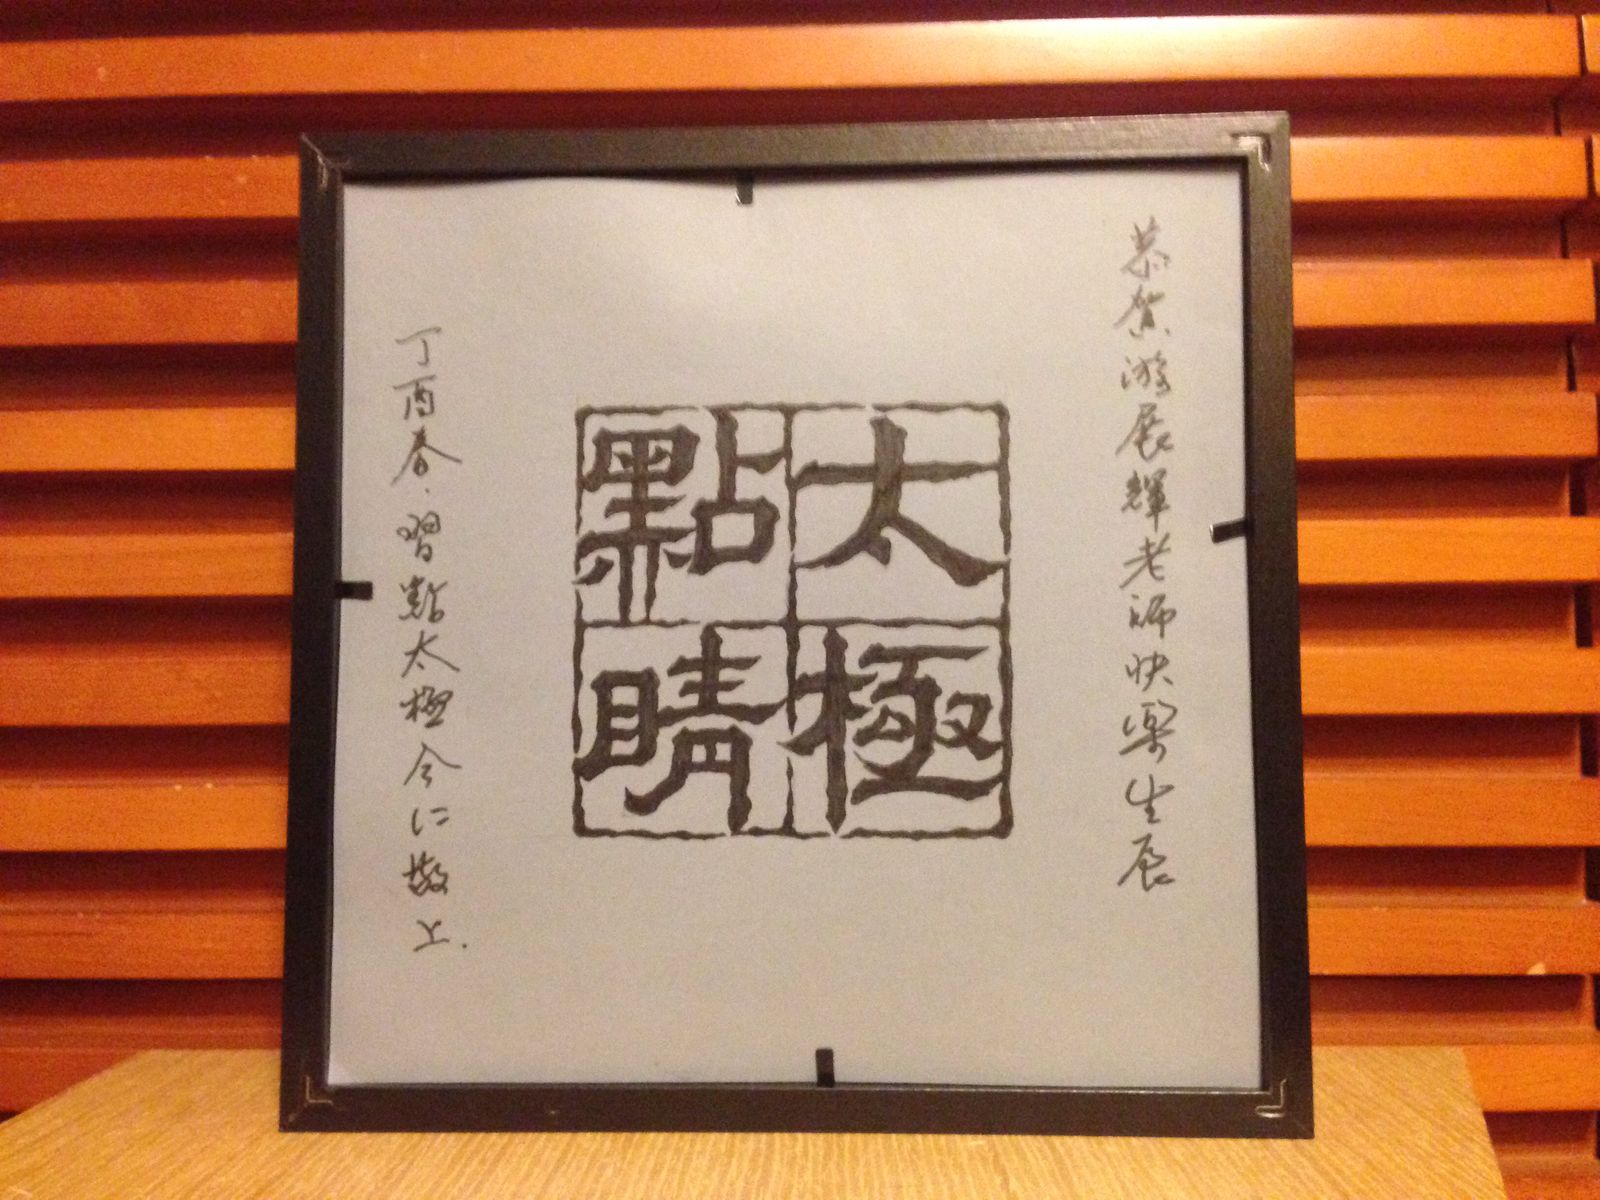 恭賀游展輝老師快樂生辰
太極
點睛
丁酉春.習點太極令仁敬上.